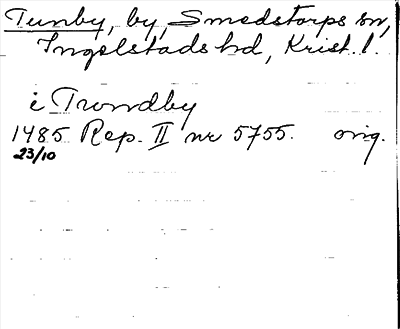 Tunby, by, Smedstorps sn,
Ingelstads hd, Krist. l.
i Trondby
1485 Rep. II nr 5755. orig.
23/10